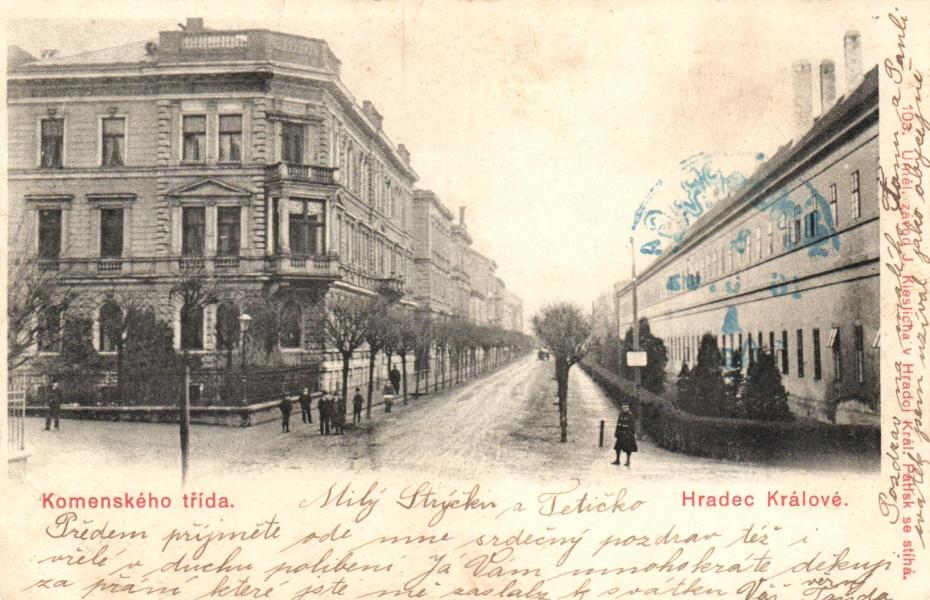 Komenského třída.
Hradec Králové.
Milý Strýčku a Tetičko
Předem přijměte ode mne srdečný pozdrav též i
vřelé v duchu políbení. Já Vám mnohokráte děkuji
za přání které jste mě zaslaly k svátku Váš věrný
103. Uměl. závod J. Kieslicha v Hradci Král. Patisk se stíhá.
Pozdrav
jako obyčejně